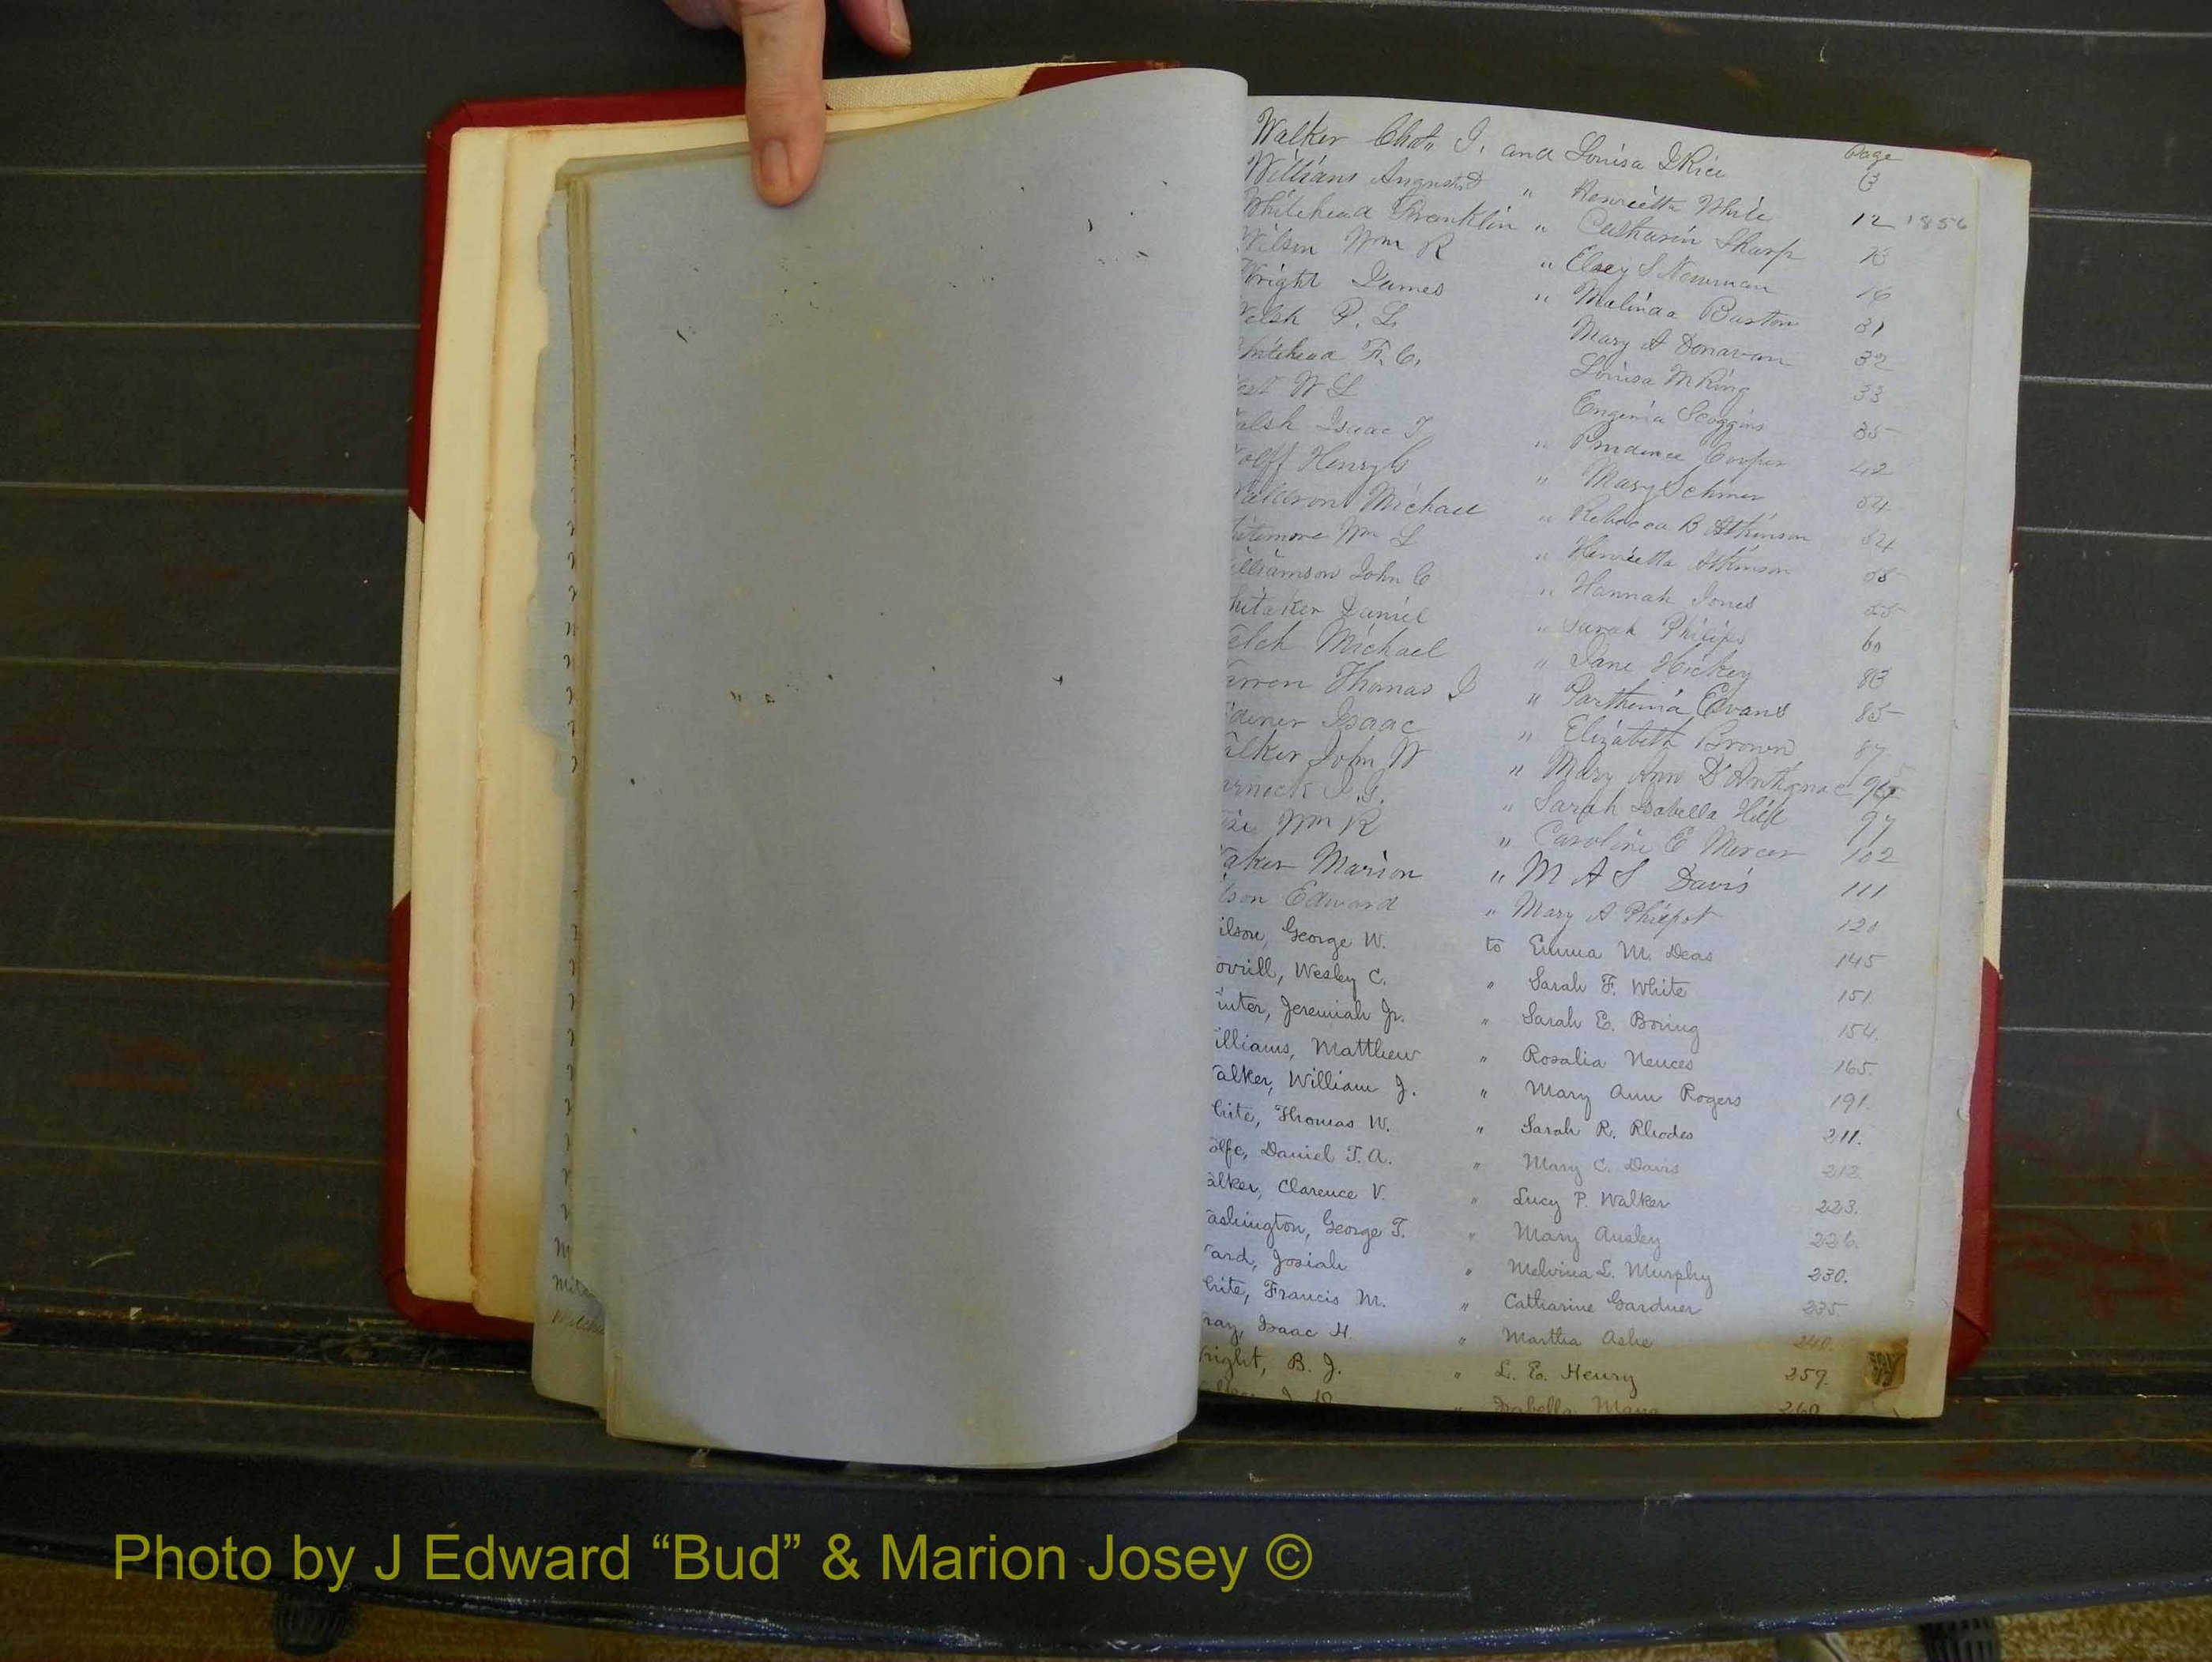 Page
Walker Chas. J. and Louisa D Rice 6
Williams August D " Henrietta White 12 1856
Whitehead Franklin " Catharin Sharp 13
Wilson Wm R " Elsey S. Newman 16
Wright James " Malinda Barton 31
elsh P. L. Mary A Donavan 32
hitehead F. C. Louisa M King 33
est W L Eugenia Scoggins 35
alsh Isaac T " Prudence Cooper 42
olff Henry C " Mary Schmer 54
Michael " Rebecca B Atkinson 54
itemore Wm L " Henrietta Atkinson 55
illiamson John C " Hannah Jones 55
hitaker Daniel " Sarah Philips 60
elch Michael " Jane Hickey 83
arren Thomas J " Parthenia Evans 85
idener Isaac " Elizabeth Brown 87
alker John W " Mary Ann D'Antignac 96
arnock J. G. " Sarah Isabella Hill 97
ise Wm R " Caroline E Mercer 102
aker Marion " M A S Davis 111
lson Edward " Mary A Philpot 120
ilson, George W. to Emma M. Deas 145
orrill, Wesley C. " Sarah F. White 151.
inter, Jeremiah Jr. " Sarah E. Boring 154.
illiams, Matthew " Rosalia Neuces 165.
alker, William J. " Mary Ann Rogers 191.
hite, Thomas W. " Sarah R. Rhodes 211.
olfe, Daniel T. A. " Mary C. Davis 212.
alker, Clarence V. " Lucy P. Walker 223.
ashington, George T. " Mary Ausley 226.
ard, Josiah " Melvina L. Murphy 230.
hite, Francis M. " Catharine Gardner 235.
ray, Isaac H. " Martha Ashe 240.
right, B. J. " L. E. Henry 259.
" Isabella 260
Photo by J Edward “Bud” & Marion Josey ©